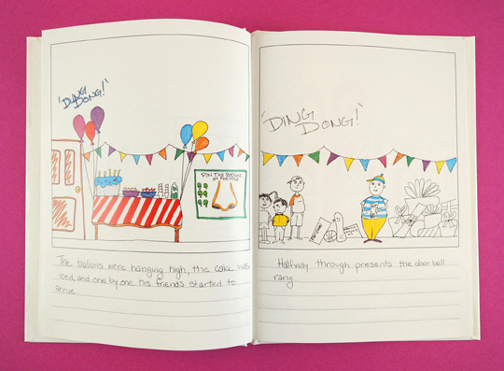 "DING
DONG!"
PIN THE BOOGER
The ballons were hanging high, the cake was
iced, and one by one his friends started to
arrive
"DING
DONG!"
Halfway through presents the door bell
rang